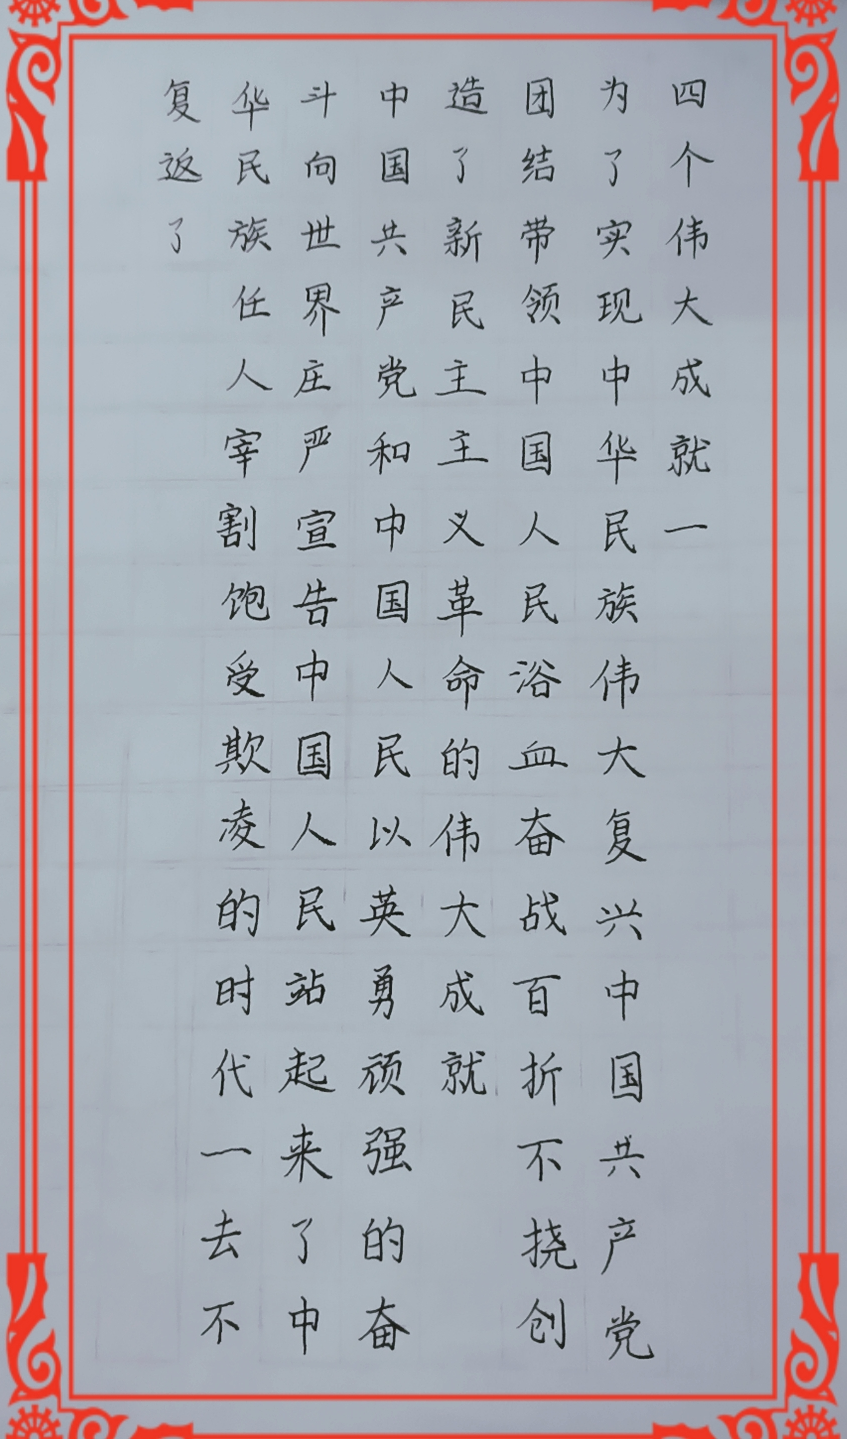 四个伟大成就一
为了实现中华民族伟大复兴中国共产党
团结带领中国人民浴血奋战百折不挠创
造了新民主主义革命的伟大成就
中国共产党和中国人民以英勇顽强的奋
斗向世界庄严宣告中国人民站起来了中
华民族任人宰割饱受欺凌的时代一去不
复返了